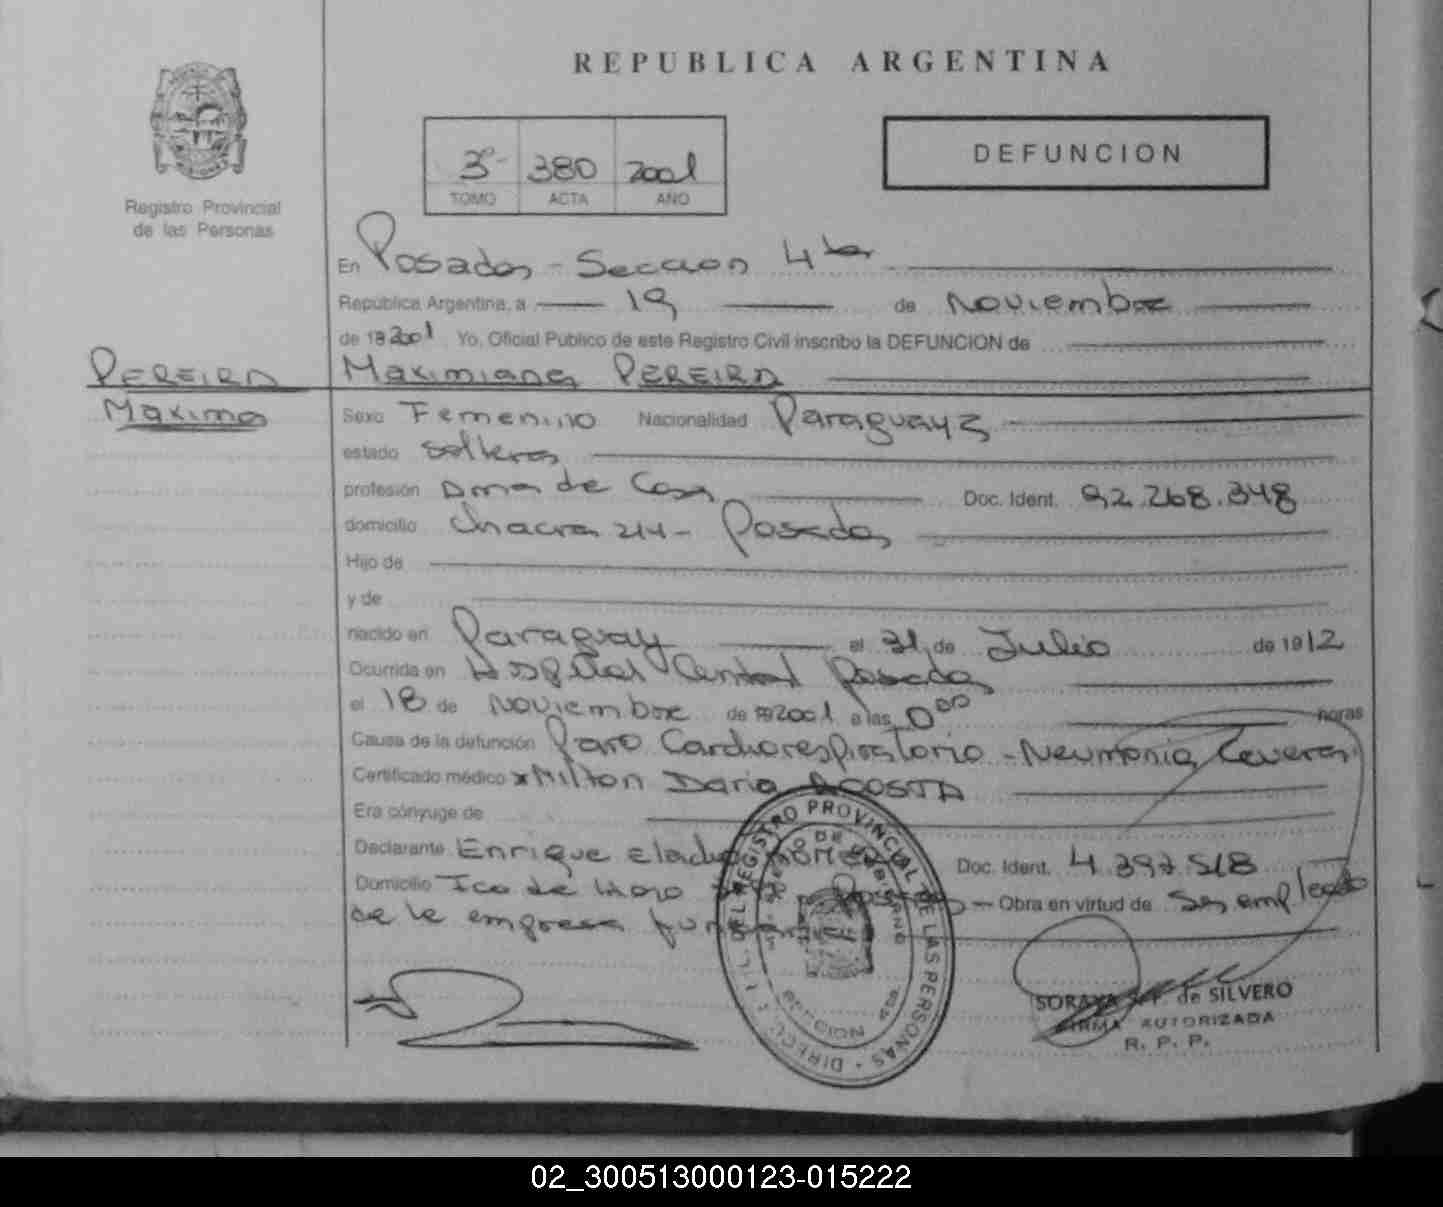 REPUBLICA ARGENTINA
Registro Provincial
de las Personas
3º 380 2001
TOMO ACTA AÑO
DEFUNCION
En Posadas - Seccion 4ta
República Argentina, a 19 de Noviembre
de 19 2001 Yo, Oficial Público de este Registro Civil inscribo la DEFUNCION de
PEREIRA
Maximiana PEREIRA
Maxima
Sexo Femenino Nacionalidad Paraguaya
estado soltera
profesión Ama de Casa Doc. Ident. 92.268.348
domicilio Chacra 214 - Posadas
Hijo de
y de
nacido en Paraguay el 31 de Julio de 1912
Ocurrida en Hospital Central Posadas
el 18 de Noviembre de 19 2001 a las 0 00 horas
Causa de la defunción Paro Cardiorespiratorio - Neumonia Severa
Certificado médico x Milton Dario ACOSTA
Era cónyuge de
Declarante Enrique Doc. Ident. 4.397.518
Domicilio Posadas - Obra en virtud de Ser empleado
de la empresa
DIRECC. DEL REGISTRO PROVINCIAL DE LAS PERSONAS
SORAYA de SILVERO
FIRMA AUTORIZADA
R. P. P.
02_300513000123-015222